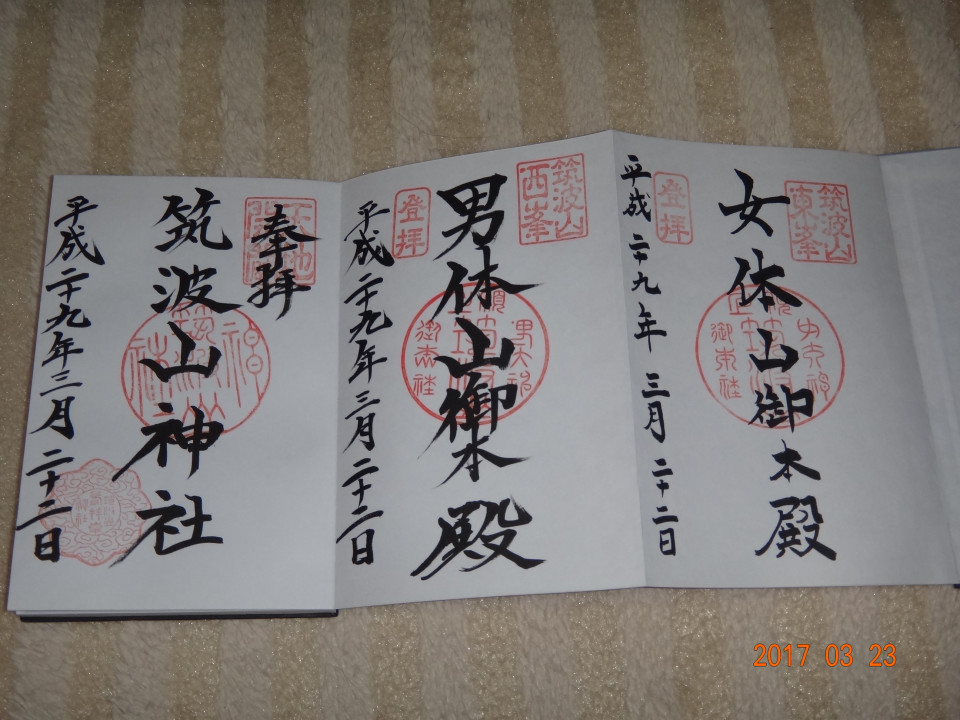 女体山御本殿
筑波山
東峯
登拝
平成二十九年三月二十二日
男体山御本殿
筑波山
西峯
登拝
平成二十九年三月二十二日
奉拝
筑波山神社
平成二十九年三月二十二日
2017 03 23